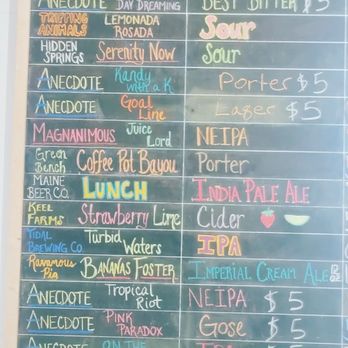 ANECDOTE DAY DREAMING BEST BITTER $5
TRIPPING ANIMALS LEMONADA ROSADA Sour
HIDDEN SPRINGS Serenity Now Sour
ANECDOTE Kandy with a K Porter $5
ANECDOTE Goal Line Lager $5
MAGNANIMOUS Juice Lord NEIPA
Green Bench Coffee Pot Bayou Porter
MAINE BEER CO. LUNCH INDIA PALE ALE
KEEL FARMS Strawberry Lime Cider
TIDAL BREWING CO. Turbid Waters IPA
Ravenous Pig BANANAS FOSTER IMPERIAL CREAM ALE
ANECDOTE Tropical Riot NEIPA $5
ANECDOTE PINK PARADOX Gose $5
ANECDOTE ON THE